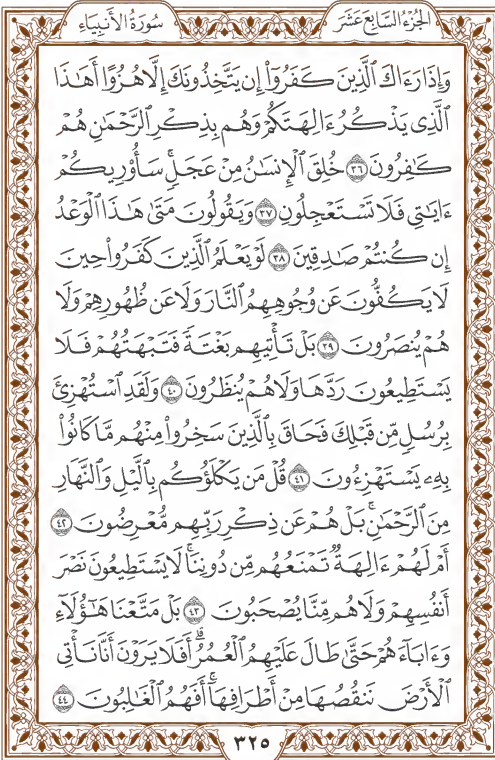 الجزء السابع عشر
سورة الأنبياء
وَإِذَا رَءَاكَ ٱلَّذِينَ كَفَرُوٓا۟ إِن يَتَّخِذُونَكَ إِلَّا هُزُوًا أَهَـٰذَا
ٱلَّذِى يَذْكُرُ ءَالِهَتَكُمْ وَهُم بِذِكْرِ ٱلرَّحْمَـٰنِ هُمْ
كَـٰفِرُونَ ٣٦ خُلِقَ ٱلْإِنسَـٰنُ مِنْ عَجَلٍ ۚ سَأُو۟رِيكُمْ
ءَايَـٰتِى فَلَا تَسْتَعْجِلُونِ ٣٧ وَيَقُولُونَ مَتَىٰ هَـٰذَا ٱلْوَعْدُ
إِن كُنتُمْ صَـٰدِقِينَ ٣٨ لَوْ يَعْلَمُ ٱلَّذِينَ كَفَرُوا۟ حِينَ
لَا يَكُفُّونَ عَن وُجُوهِهِمُ ٱلنَّارَ وَلَا عَن ظُهُورِهِمْ وَلَا
هُمْ يُنصَرُونَ ٣٩ بَلْ تَأْتِيهِم بَغْتَةً فَتَبْهَتُهُمْ فَلَا
يَسْتَطِيعُونَ رَدَّهَا وَلَا هُمْ يُنظَرُونَ ٤٠ وَلَقَدِ ٱسْتُهْزِئَ
بِرُسُلٍ مِّن قَبْلِكَ فَحَاقَ بِٱلَّذِينَ سَخِرُوا۟ مِنْهُم مَّا كَانُوا۟
بِهِۦ يَسْتَهْزِءُونَ ٤١ قُلْ مَن يَكْلَؤُكُم بِٱلَّيْلِ وَٱلنَّهَارِ
مِنَ ٱلرَّحْمَـٰنِ ۗ بَلْ هُمْ عَن ذِكْرِ رَبِّهِم مُّعْرِضُونَ ٤٢
أَمْ لَهُمْ ءَالِهَةٌ تَمْنَعُهُم مِّن دُونِنَا ۚ لَا يَسْتَطِيعُونَ نَصْرَ
أَنفُسِهِمْ وَلَا هُم مِّنَّا يُصْحَبُونَ ٤٣ بَلْ مَتَّعْنَا هَـٰٓؤُلَآءِ
وَءَابَآءَهُمْ حَتَّىٰ طَالَ عَلَيْهِمُ ٱلْعُمُرُ ۗ أَفَلَا يَرَوْنَ أَنَّا نَأْتِى
ٱلْأَرْضَ نَنقُصُهَا مِنْ أَطْرَافِهَآ ۚ أَفَهُمُ ٱلْغَـٰلِبُونَ ٤٤
٣٢٥